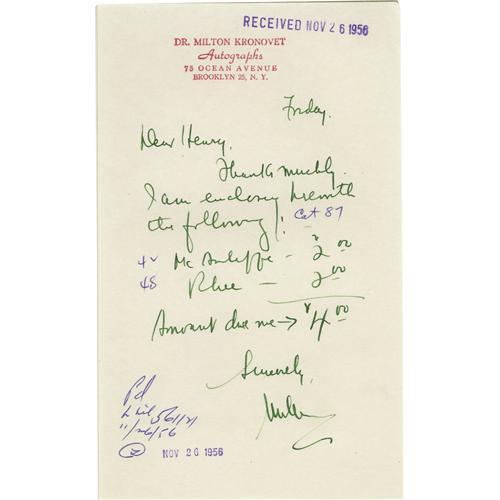 RECEIVED NOV 26 1956
DR. MILTON KRONOVET
Autographs
75 OCEAN AVENUE
BROOKLYN 25, N. Y.
Friday.
Dear Henry,
Thanks muchly.
I am enclosing herewith
the following! Cat 87
42 McAuliffe - $2.00
48 Rhee - 2.00
Amount due me → $4.00
Sincerely,
Milton
Pd
11/26/56
2
NOV 26 1956